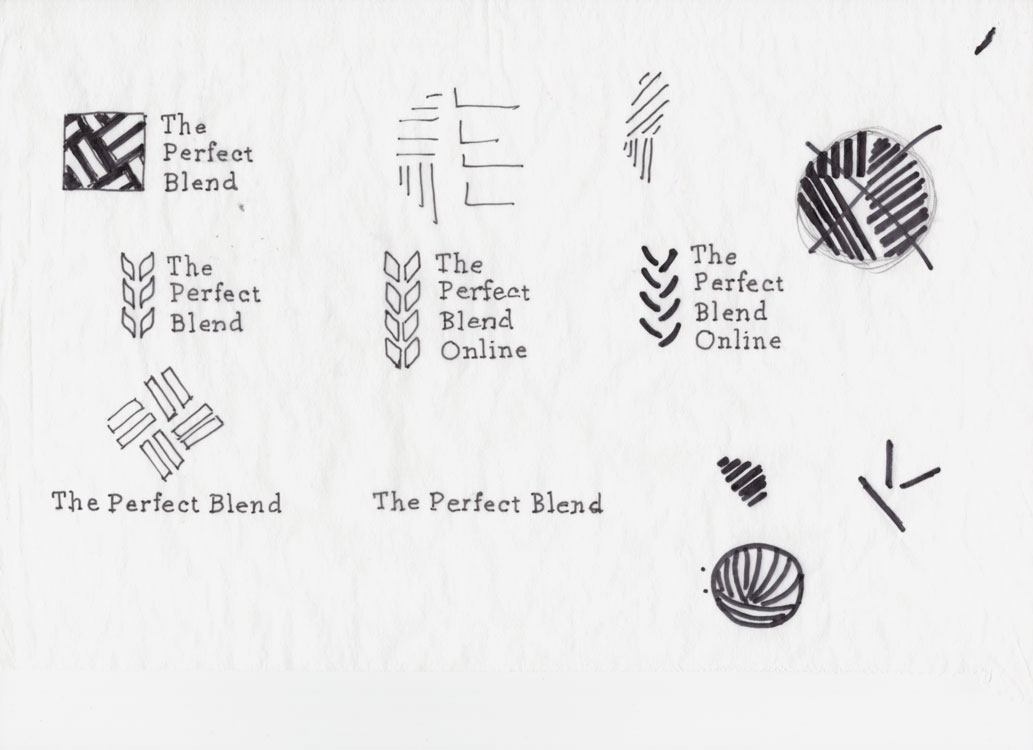 The
Perfect
Blend
The
Perfect
Blend
The
Perfect
Blend
Online
The
Perfect
Blend
Online
The Perfect Blend
The Perfect Blend